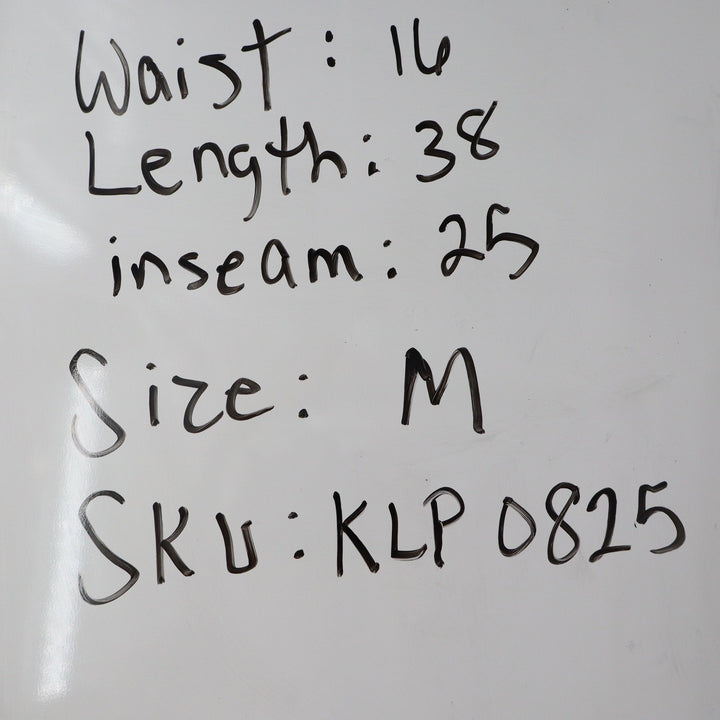 Waist: 16
Length: 38
inseam: 25
Size: M
SKU: KLP 0825